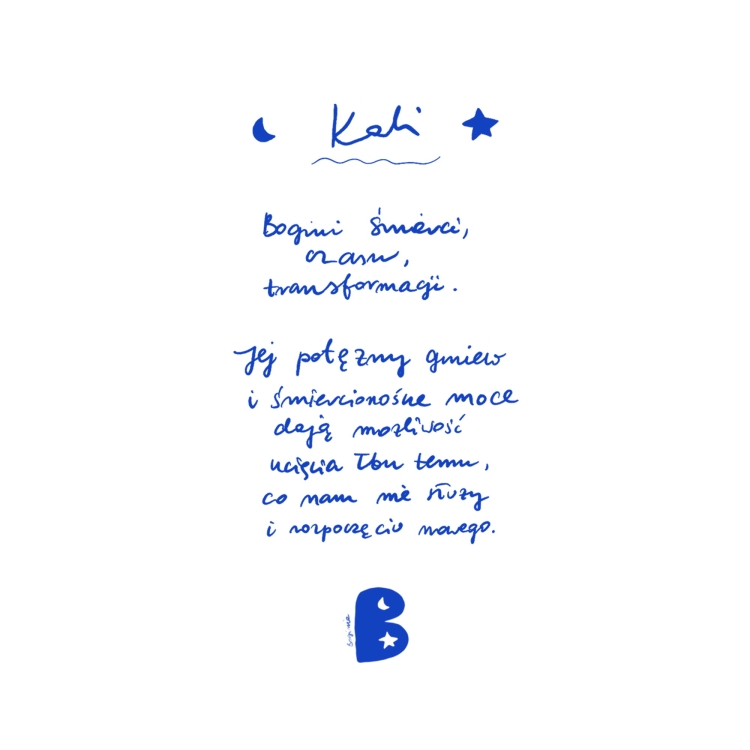 Kali
Bogini śmierci,
czasu,
transformacji.
Jej potężny gniew
i śmiercionośne moce
dają możliwość
ucięcia łbu temu,
co nam nie służy
i rozpoczęciu nowego.
B